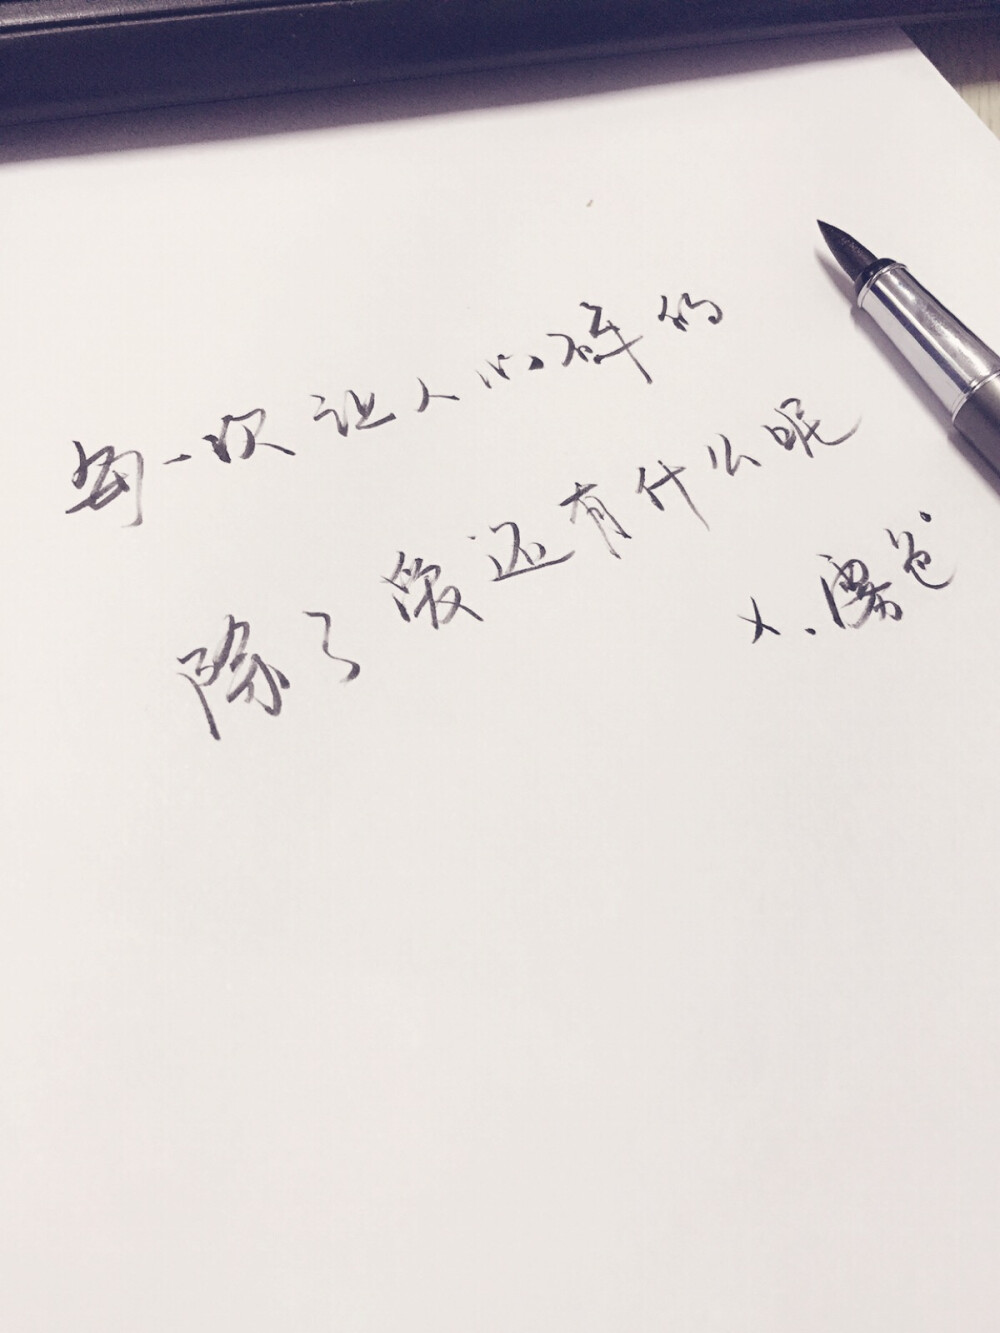 每一次让人心碎的
除了爱还有什么呢